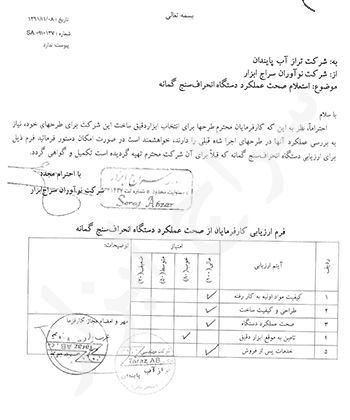 بسمه تعالی
تاریخ : ۱۳۹۱/۱۱/۰۸
شماره : SA ۰۹۱۰۱۳۷
پیوست: ندارد
به: شرکت تراز آب پایندان
از: شرکت نوآوران سراج ابزار
موضوع: استعلام صحت عملکرد دستگاه انحراف‌سنج گمانه
با سلام
احتراماً، نظر به این که کارفرمایان محترم طرحها برای انتخاب ابزاردقیق ساخت این شرکت برای طرحهای خود، نیاز
به بررسی عملکرد آنها در طرحهای اجرا شده قبلی را دارند، خواهشمند است در صورت امکان دستور فرمائید فرم ذیل
برای ارزیابی دستگاه انحراف‌سنج گمانه که قبلاً برای آن شرکت محترم تهیه گردیده است تکمیل و گواهی گردد.
با احترام مجدد
شرکت نوآوران سراج‌ابزار
سراج ابزار
Seraj Abzar
فرم ارزیابی کارفرمایان از صحت عملکرد دستگاه انحراف‌سنج گمانه
ردیف آیتم ارزیابی امتیاز توضیحات:
عالی (۱۰۰) خوب (۸۰) متوسط (۶۰) ضعیف (۴۰)
۱ کیفیت مواد اولیه به کار رفته ✓
۲ طراحی و کیفیت ساخت ✓ مهر و امضاء مجاز کارفرما
۳ صحت عملکرد دستگاه ✓
۴ تامین به موقع ابزار دقیق ✓
۵ خدمات پس از فروش ✓
TARAZ AB
تراز آب
پایندان